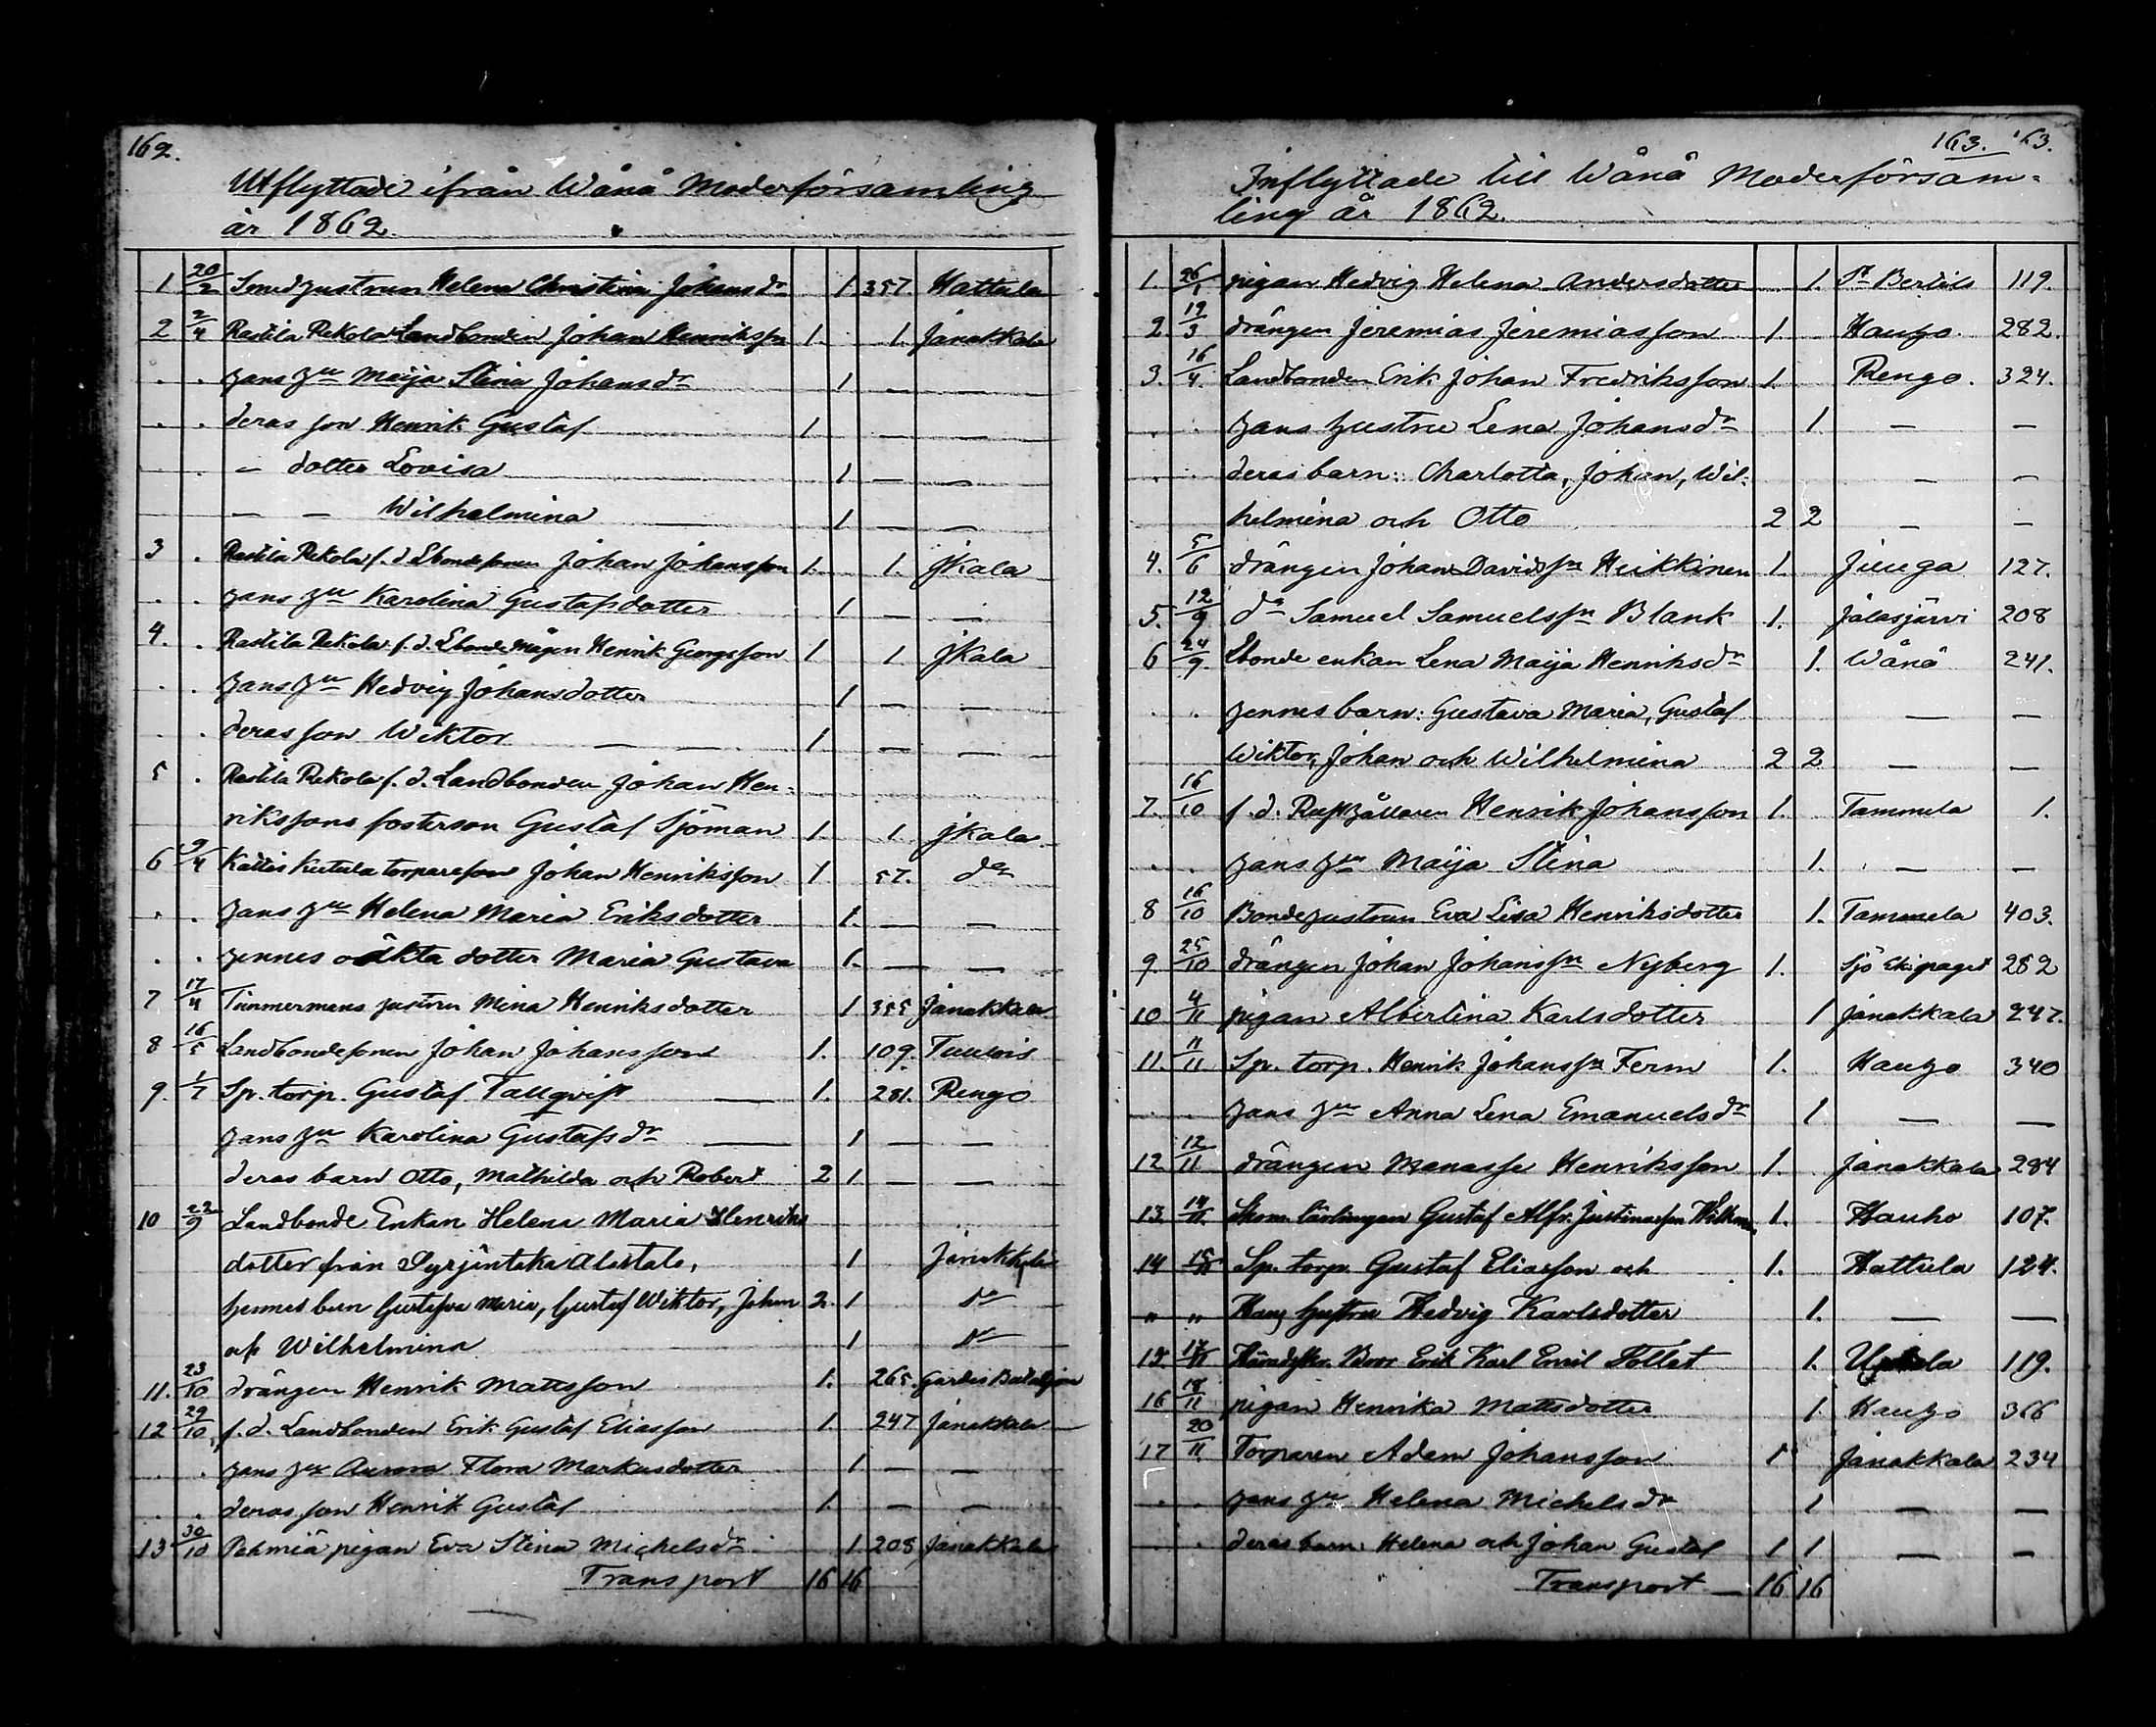 162.
Utflyttade ifrån Wånå Moderförsamling
år 1862.
1 20/2 Smedhustrun Helena Christina Johansdr 1. 357. Hattula
2 2/4 Rastila Rekola Landbonden Johan Henriksson 1. 1. Janakkala
. . hans hu Maija Stina Johansdr 1 — —
. . deras son Henrik Gustaf 1 — —
. — dotter Lovisa 1 — —
— — Wilhelmina — 1 — —
3 . Rastila Rekola f.d. Lbondesonen Johan Johansson 1. 1. Jkala
. . hans hu Karolina Gustafsdotter 1 — —
4. . Rastila Rekola f.d. Lbonde Mågen Henrik Georgsson 1 1. Jkala
. . hans hu Hedvig Johansdotter 1 — —
. . deras son Wiktor — — 1 — —
5 . Rastila Rekola f.d. Landbonden Johan Hen-
rikssons fosterson Gustaf Sjöman 1. 1. Jkala
6 9/4 Kattis Kutula torpareson Johan Henriksson 1 57. do
. . hans hu Helena Maria Eriksdotter 1. — —
. . hennes oäkta dotter Maria Gustava 1. — —
7 17/4 Timmermans hustrun Mina Henriksdotter 1 355 Janakkala
8 16/5 Landbondesonen Johan Johansson 1. 109. Tulois
9. 1/7 Sp. torp. Gustaf Tallqvist — 1. 281. Rengo
hans hu Karolina Gustafsdr — 1 — —
deras barn Otto, Mathilda och Robert 2 1 — —
10 22/9 Landbonde Enkan Helena Maria Henriks
dotter från Syrjäntaka Alastalo, 1 Janakkala
hennes barn Gustafva Maria, Gustaf Wiktor, Johan 2. 1 do
och Wilhelmina 1 do
11. 23/10 drängen Henrik Mattsson 1. 265. Gardes Bataljon
12 29/10 f.d. Landbonden Erik Gustaf Eliasson 1. 247 Janakkala
. . hans hu Aurora Flora Markusdotter 1 — —
. . deras son Henrik Gustaf 1. — —
13 30/10 Pehmiä pigan Eva Stina Michelsdr 1. 208 Janakkala
Transport 16 16
163. 163.
Inflyttade till Wånå Moderförsam-
ling år 1862.
1. 26/1 pigan Hedvig Helena Andersdotter 1. St Bertils 119.
2. 19/3 drängen Jeremias Jeremiasson 1. Hauho. 282.
3. 16/4. Landbonden Erik Johan Fredriksson 1. Rengo. 324.
. . hans hustru Lena Johansdr 1. — —
. . deras barn: Charlotta, Johan, Wil- — —
helmina och Otto 2 2 — —
4. 5/6 drängen Johan Davidssn Heikkinen 1. Juuga 127.
5. 12/9 do Samuel Samuelssn Blank 1. Jalasjärvi 208
6 24/9. Lbonde enkan Lena Maija Henriksdr 1. Wånå 241.
. . hennes barn: Gustava Maria, Gustaf — —
Wiktor, Johan och Wilhelmina 2 2 — —
7. 16/10 f.d. Rusthållaren Henrik Johansson 1. Tammela 1.
. . hans hu Maija Stina 1. — —
8 16/10 Bondehustrun Eva Lisa Henriksdotter 1. Tammela 403.
9. 25/10 drängen Johan Johanssn Nyberg 1. Sjö Ekipaget 282
10 4/11 pigan Albertina Karlsdotter 1 Janakkala 247.
11. 11/11 Sp. torp. Henrik Johanssn Ferm 1. Hauho 340
. . hans hu Anna Lena Emanuelsdr 1 — —
12 12/11 drängen Manasse Henriksson 1. Janakkala 284
13. 14/11. Skom. lärlingen Gustaf Alfr. Justinasson 1. Hauho 107.
14 15/11 Sp. torp. Gustaf Eliasson och 1. Hattula 124.
" " Hans hustru Hedvig Karlsdotter 1. — —
15. 17/11 Erik Karl Emil 1. 119.
16 18/11 pigan Henrika Mattsdotter 1. Hauho 366
17 20/11. Torparen Adam Johansson 1 Janakkala 234
. . hans hu Helena Michelsdr 1 — —
. . deras barn: Helena och Johan Gustaf 1 1. — —
Transport — 16 16